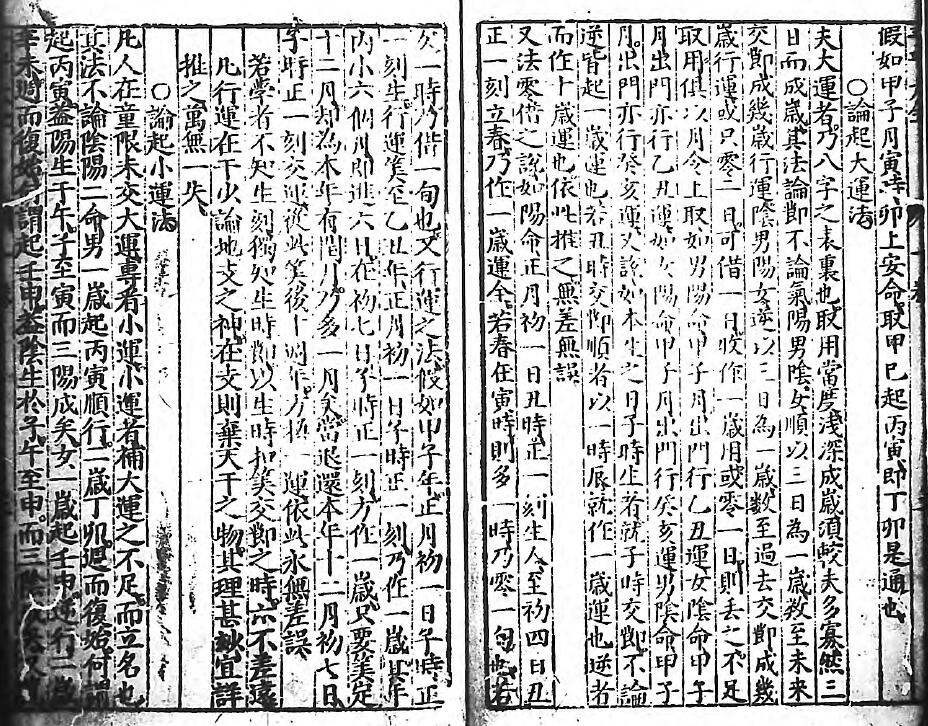 假如甲子月寅時卯上安命取甲己起丙寅即丁卯是通也
○論起大運法
夫大運者乃八字之表裏也取用當度淺深成歲須較夫多寡然三
日而成歲其法論節不論氣陽男陰女順以三日為一歲数至未來
交節成幾歲行運陰男陽女逆以三日為一歲数至過去交節成幾
歲行運或只零二日可借一日收作一歲用或零一日則丢之不足
取用俱以月令上取如男陽命甲子月出門行乙丑運女陰命甲子
月出門亦行乙丑運如女陽命甲子月出門行癸亥運男陰命甲子
月出門亦行癸亥運又說如本生之日子時生者就子時交節不論
逆皆起一歲運也若丑時交節順者以一時辰就作一歲運也逆者
而作十歲運也依此推之無差無誤
又法零借之說如陽命正月初一日丑時正一刻生人至初四日丑
正一刻立春乃作一歲運全若春在寅時則多一時乃零一旬也若
欠一時乃借一旬也又行運之法假如甲子年正月初一日子時正
一刻生行運筭至乙丑年正月初一日子時正一刻乃作一歲其年
内小六個月即進六日在初七日子時正一刻方作一歲只要筭足
十二月却為本年有閏月乃多一月矣當退還本年十二月初七日
子時正一刻交運從此筭後十週年方換一運依此永無差誤
若學者不知生刻獨知生時節以生時扣筭交節之時亦不差遠
凡行運在干少論地支之神在支則棄天干之物其理甚秘宜詳
推之萬無一失
○論起小運法
凡人在童限未交大運專看小運小運者補大運之不足而立名也
其法不論陰陽二命男一歲起丙寅順行二歲丁卯週而復始何謂
起丙寅益陽生于午子至寅而三陽成矣女一歲起壬申逆行二歲
辛未週而復始何謂起壬申益陰生於子午至申而三陰